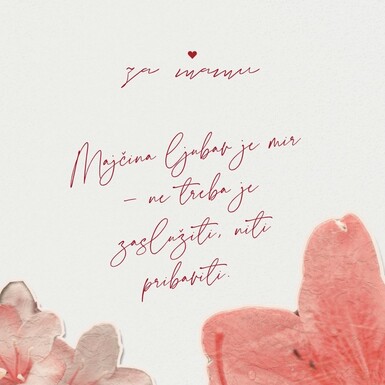 za mamu
Majčina ljubav je mir
– ne treba je
zaslužiti, niti
pribaviti.